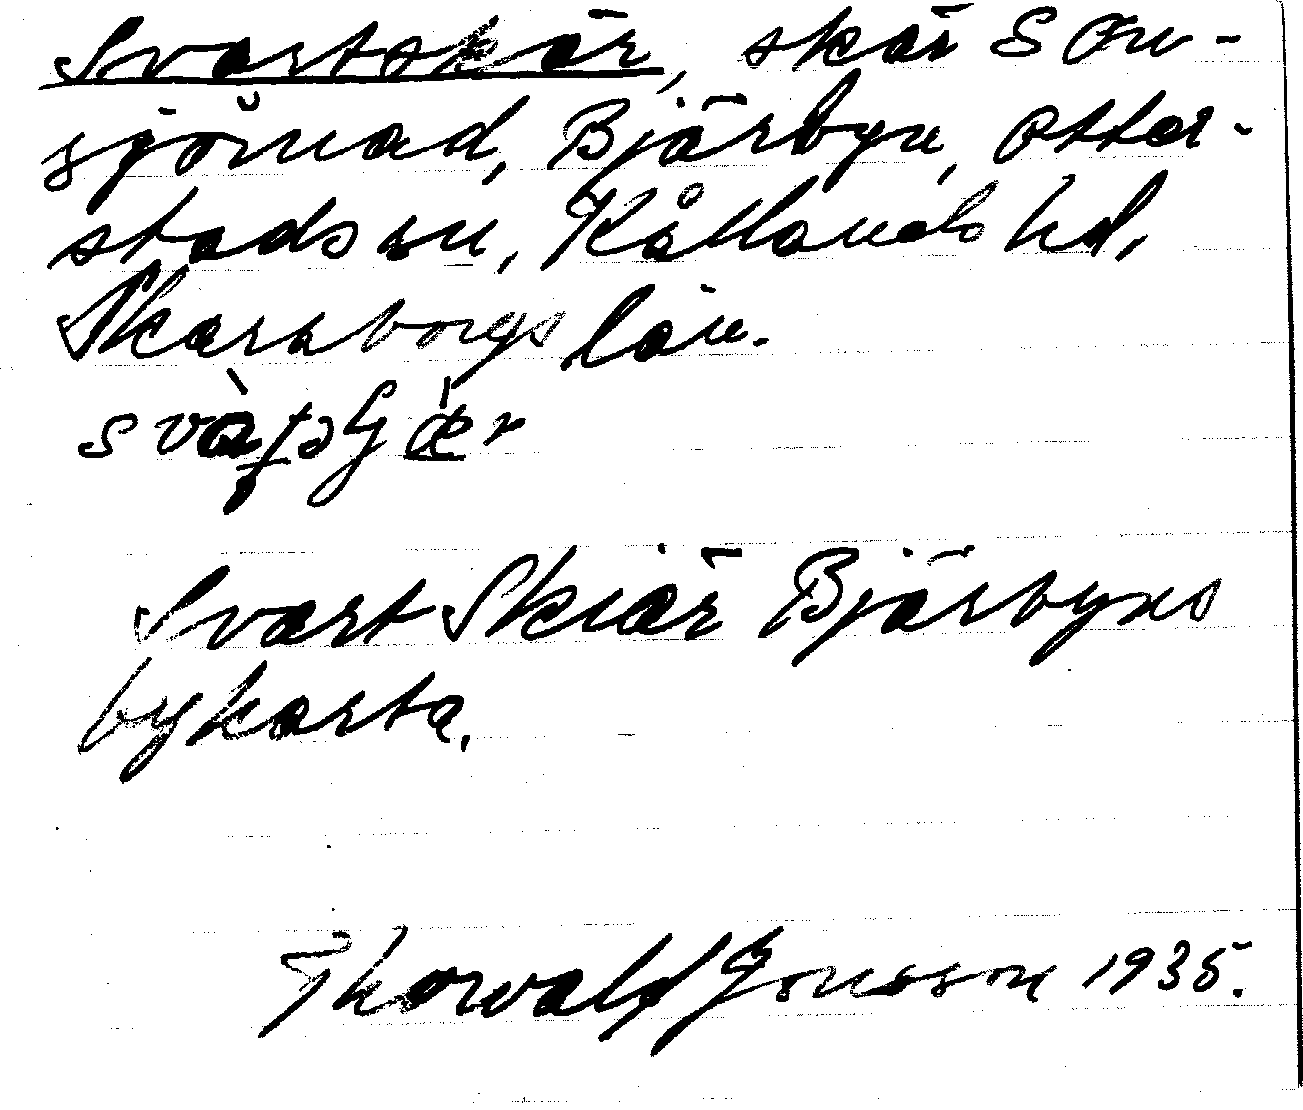 Svartskär, skär S On-
sjömad, Bjärbyn, Otter-
stads sn, Kållands hd,
Skaraborgs län.
Svart Skiär Bjärbyns
bykarta.
Thorvald Jonsson 1935.